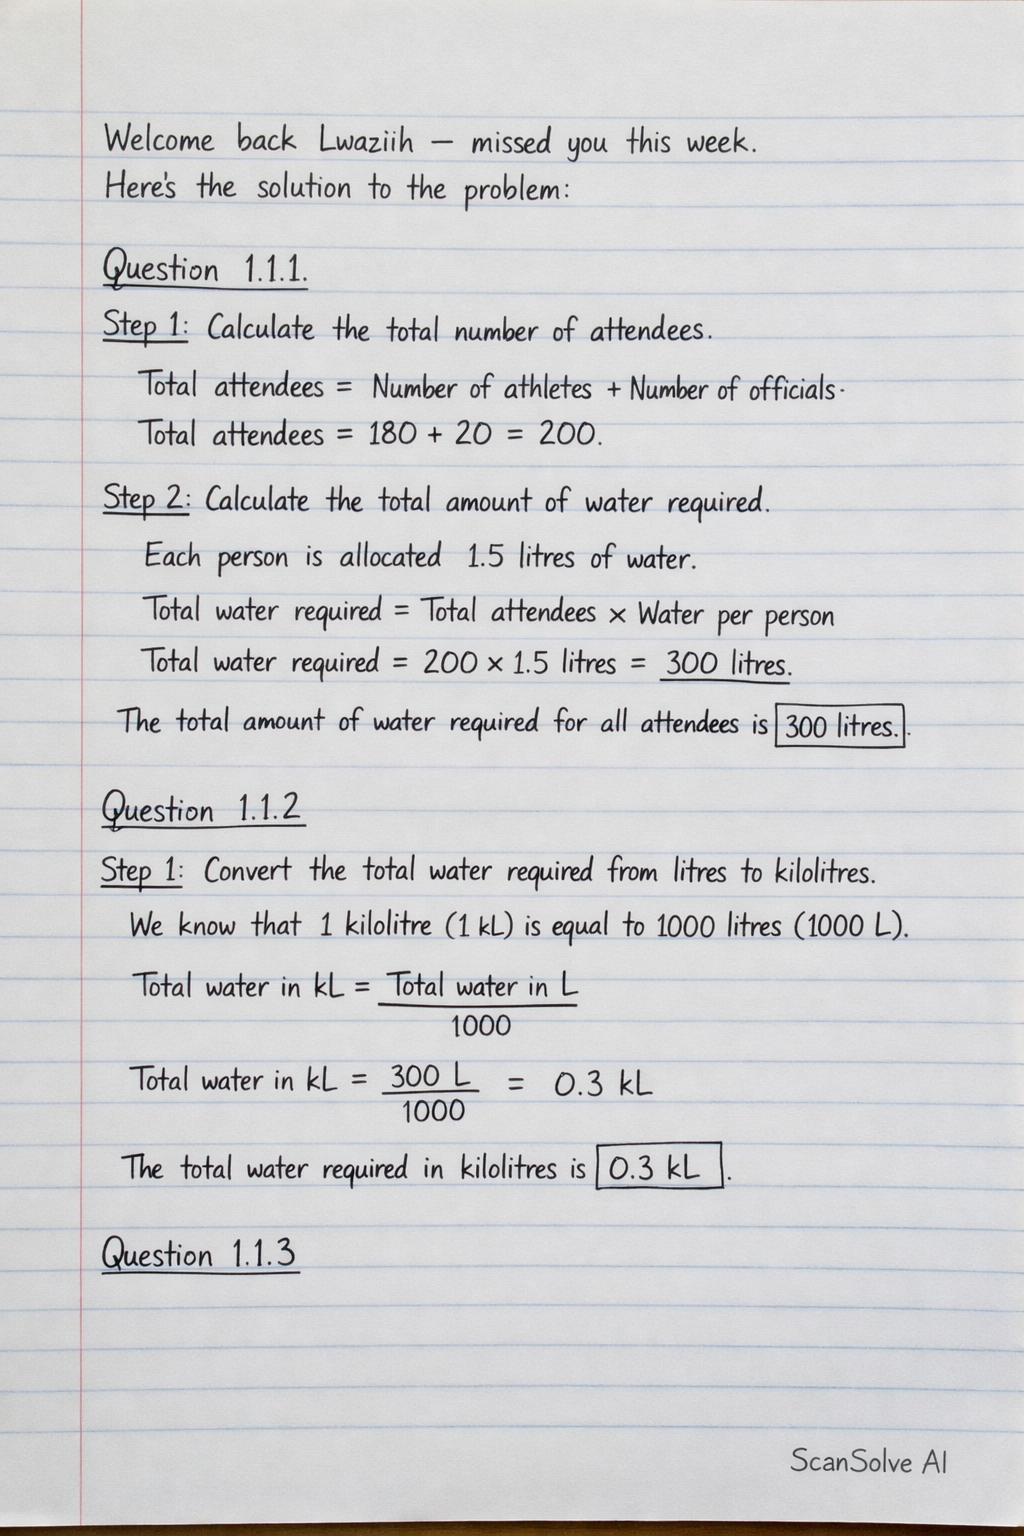 Welcome back Lwaziih — missed you this week.
Here's the solution to the problem:
Question 1.1.1.
Step 1: Calculate the total number of attendees.
Total attendees = Number of athletes + Number of officials.
Total attendees = 180 + 20 = 200.
Step 2: Calculate the total amount of water required.
Each person is allocated 1.5 litres of water.
Total water required = Total attendees × Water per person
Total water required = 200 × 1.5 litres = 300 litres.
The total amount of water required for all attendees is 300 litres..
Question 1.1.2
Step 1: Convert the total water required from litres to kilolitres.
We know that 1 kilolitre (1 kL) is equal to 1000 litres (1000 L).
Total water in kL = Total water in L
1000
Total water in kL = 300 L = 0.3 kL
1000
The total water required in kilolitres is 0.3 kL.
Question 1.1.3
ScanSolve AI